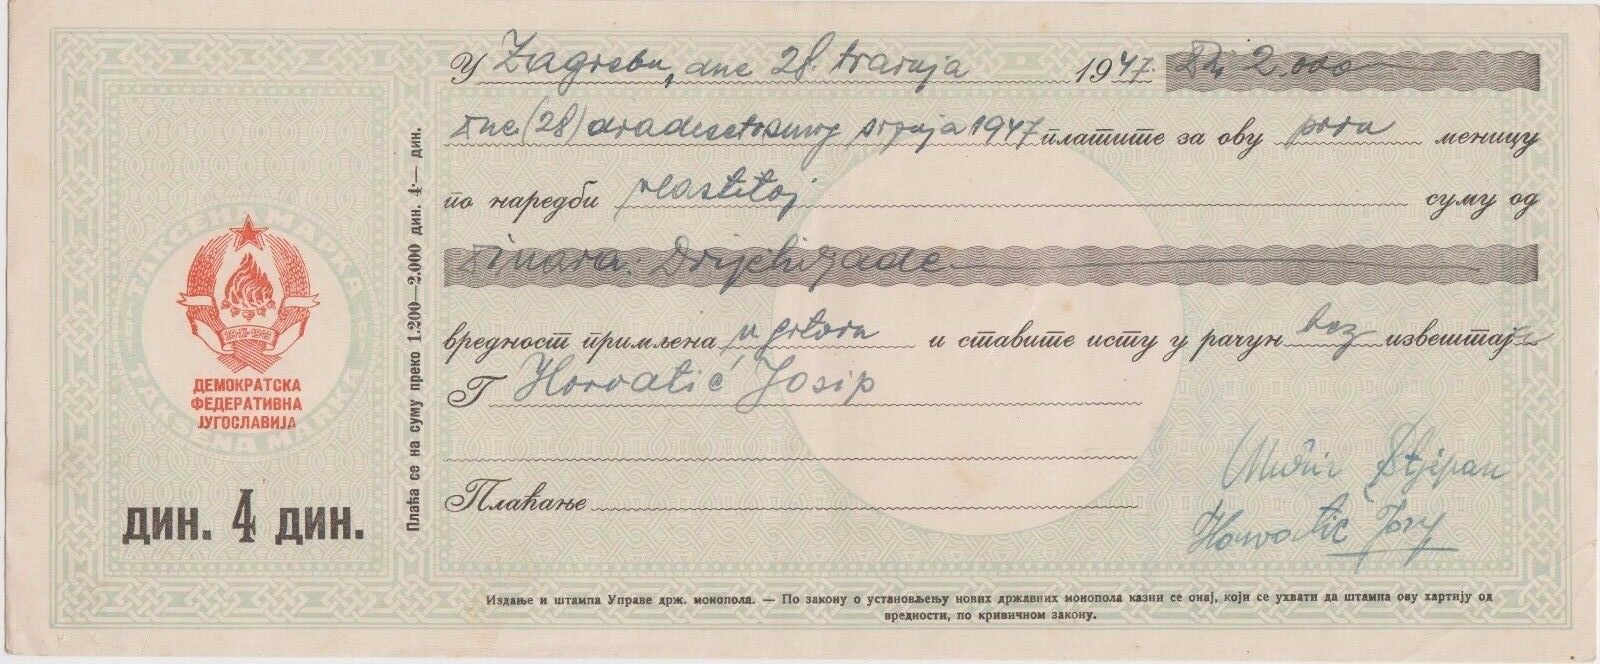 У Zagrebu, dne 28. travnja 1947. Din 2.000
Dne (28) dvadesetosmog srpnja 1947 платите за ову prvu меницу
по наредби vlastitoj суму од
Dinara. Dvijehiljade
вредност примљена u gotovu и ставите исту у рачун bez извештаја
Г Horvatić Josip
Плаћање
Stjepan
Horvatić
ТАКСЕНА МАРКА
TAKSENA MARKA
29·XI·1943
ДЕМОКРАТСКА
ФЕДЕРАТИВНА
ЈУГОСЛАВИЈА
ДИН. 4 ДИН.
Плаћа се на суму преко 1.200—2.000 дин. 4·— дин.
Издање и штампа Управе држ. монопола. — По закону о установљењу нових државних монопола казни се онај, који се ухвати да штампа ову хартију од
вредности, по кривичном закону.